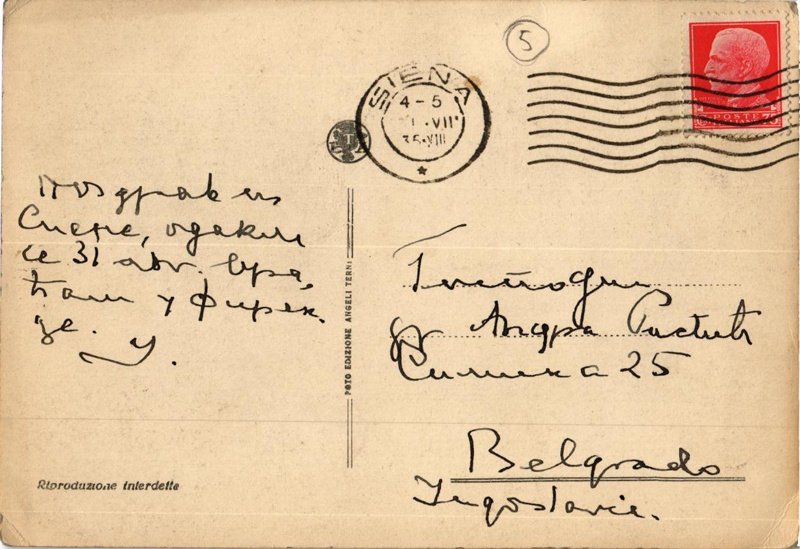 5
SIENA
4-5
VII
35·XIII
POSTE
75
Поздрав из
Сиене, одакле
се 31 авг. вра-
ћам у Фирен-
зе.
У.
FOTO EDIZIONE ANGELI TERNI
Господин
др Андра Ристић
Симина 25
Belgrado
Jugoslavie.
Riproduzione interdetta